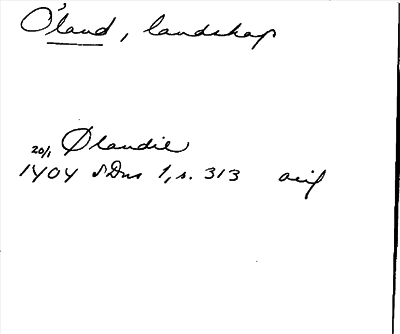 Öland, landskap
20/1 Ølandie
1404 SDns 1, s. 313 orig